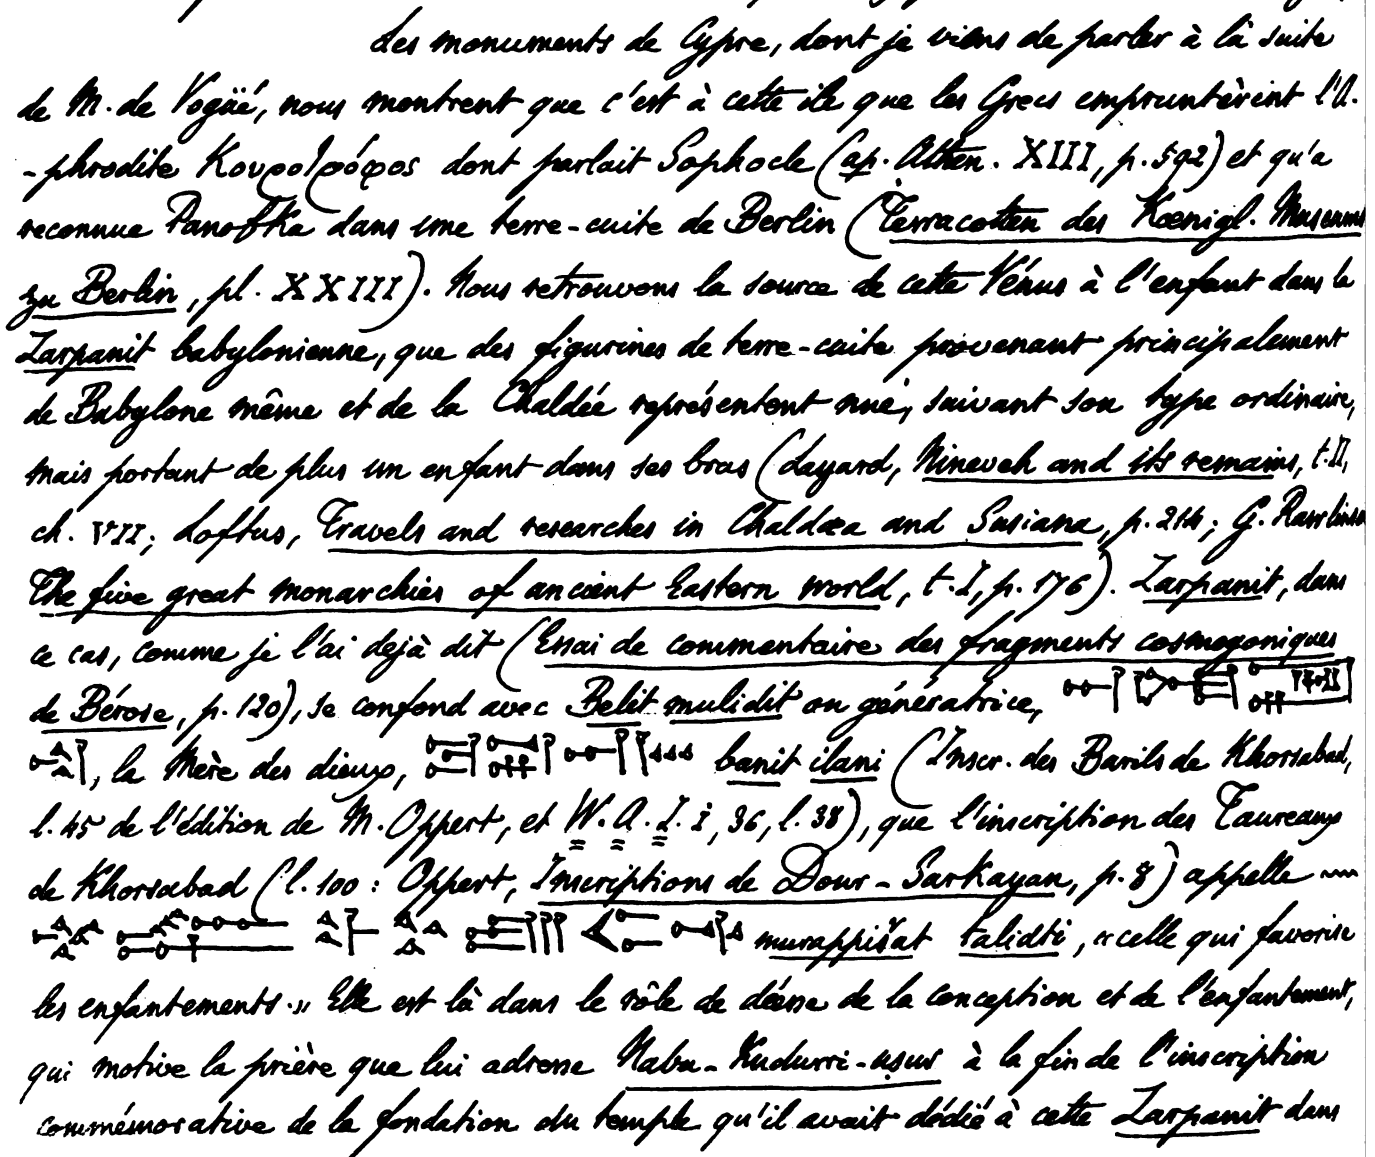 Les monuments de Cypre, dont je viens de parler à la suite
de M. de Vogüé, nous montrent que c'est à cette île que les Grecs empruntèrent l'A.
-phrodite Κουροτρόφος dont parlait Sophocle (ap. Athen. XIII, p. 592) et qu'a
reconnue Panofka dans une terre-cuite de Berlin (Terracotten des Kœnigl. Museums
zu Berlin, pl. XXXIII). Nous retrouvons la source de cette Vénus à l'enfant dans la
Zarpanit babylonienne, que des figurines de terre-cuite provenant principalement
de Babylone même et de la Chaldée représentent nue, suivant son type ordinaire,
mais portant de plus un enfant dans ses bras (Layard, Nineveh and its remains, t. II,
ch. VII; Loftus, Travels and researches in Chaldæa and Susiana, p. 214; G. Rawlinson
The five great monarchies of ancient Eastern world, t. I, p. 176). Zarpanit, dans
ce cas, comme je l'ai dejà dit (Essai de commentaire des fragments cosmogoniques
de Bérose, p. 120), se confond avec Belit mulidit ou génératrice,
, la Mère des dieux, banit ilani (Inscr. des Barils de Khorsabad,
l. 45 de l'édition de M. Oppert, et W. A. I. i, 36, l. 38), que l'inscription des Taureaux
de Khorsabad (l. 100 : Oppert, Inscriptions de Dour-Sarkayan, p. 8) appelle
murappišat talidti, «celle qui favorise
les enfantements.» Elle est là dans le rôle de déesse de la conception et de l'enfantement,
qui motive la prière que lui adresse Nabu-Kudurri-uşur à la fin de l'inscription
commémorative de la fondation du temple qu'il avait dédié à cette Zarpanit dans